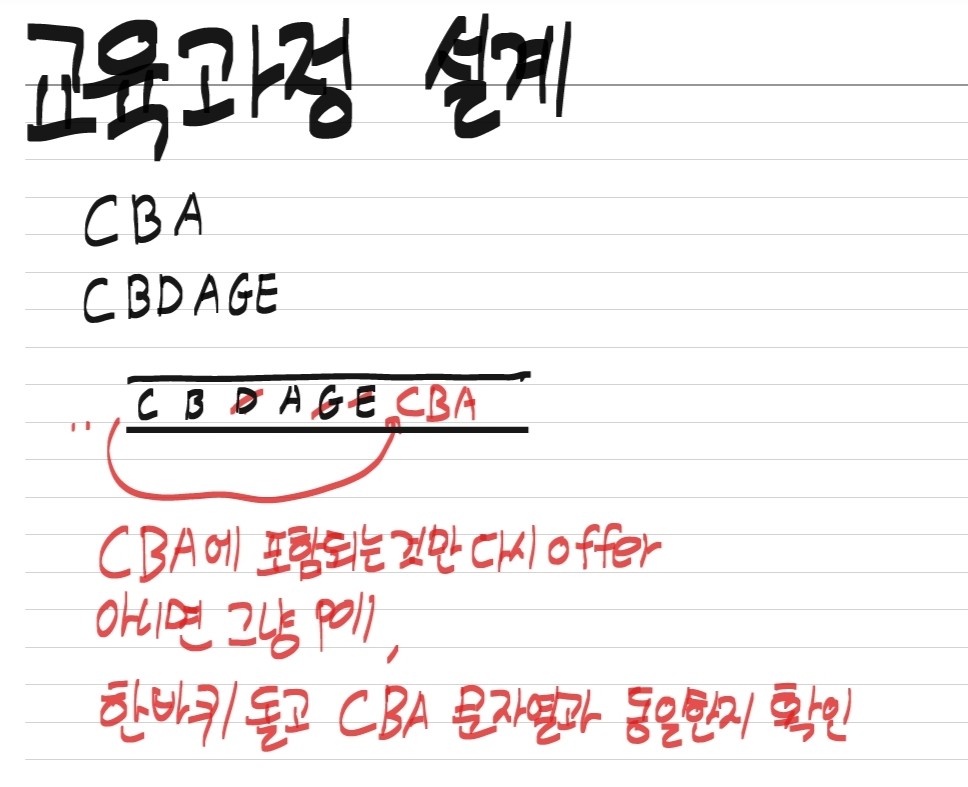 교육과정 설계
CBA
CBDAGE
C B D A G E CBA
CBA에 포함되는 것만 다시 offer
아니면 그냥 poll,
한바퀴 돌고 CBA 문자열과 동일한지 확인